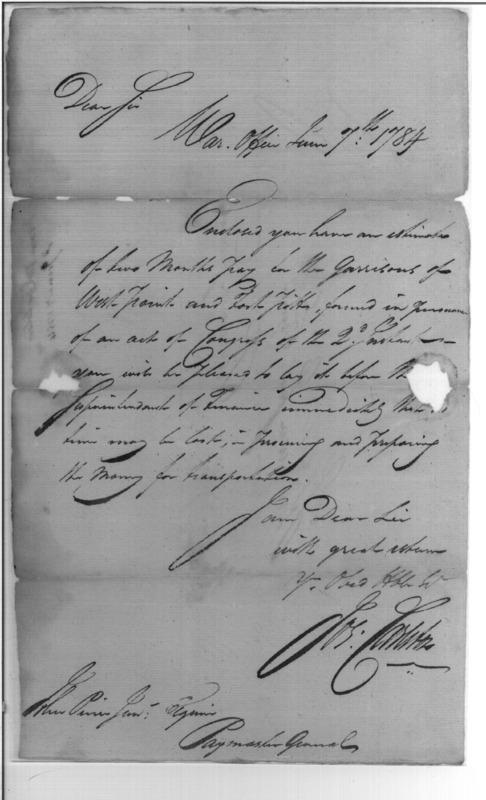 Dear Sir
War. Office June 7th. 1784
Enclosed you have an estimate
of two Months pay for the Garrisons of
West Point and Fort Pitt, formed in pursuance
of an act of Congress of the 2d. Instant—
you will be pleased to lay it before the
Superintendant of Finance immediatly that no
time may be lost, in procuring and preparing
the Money for transportation.
I am Dear Sir
with great esteem
Yr. Obed Hble St
Jos. Carleton
John Pierce Junr. Esquire
Paymaster General